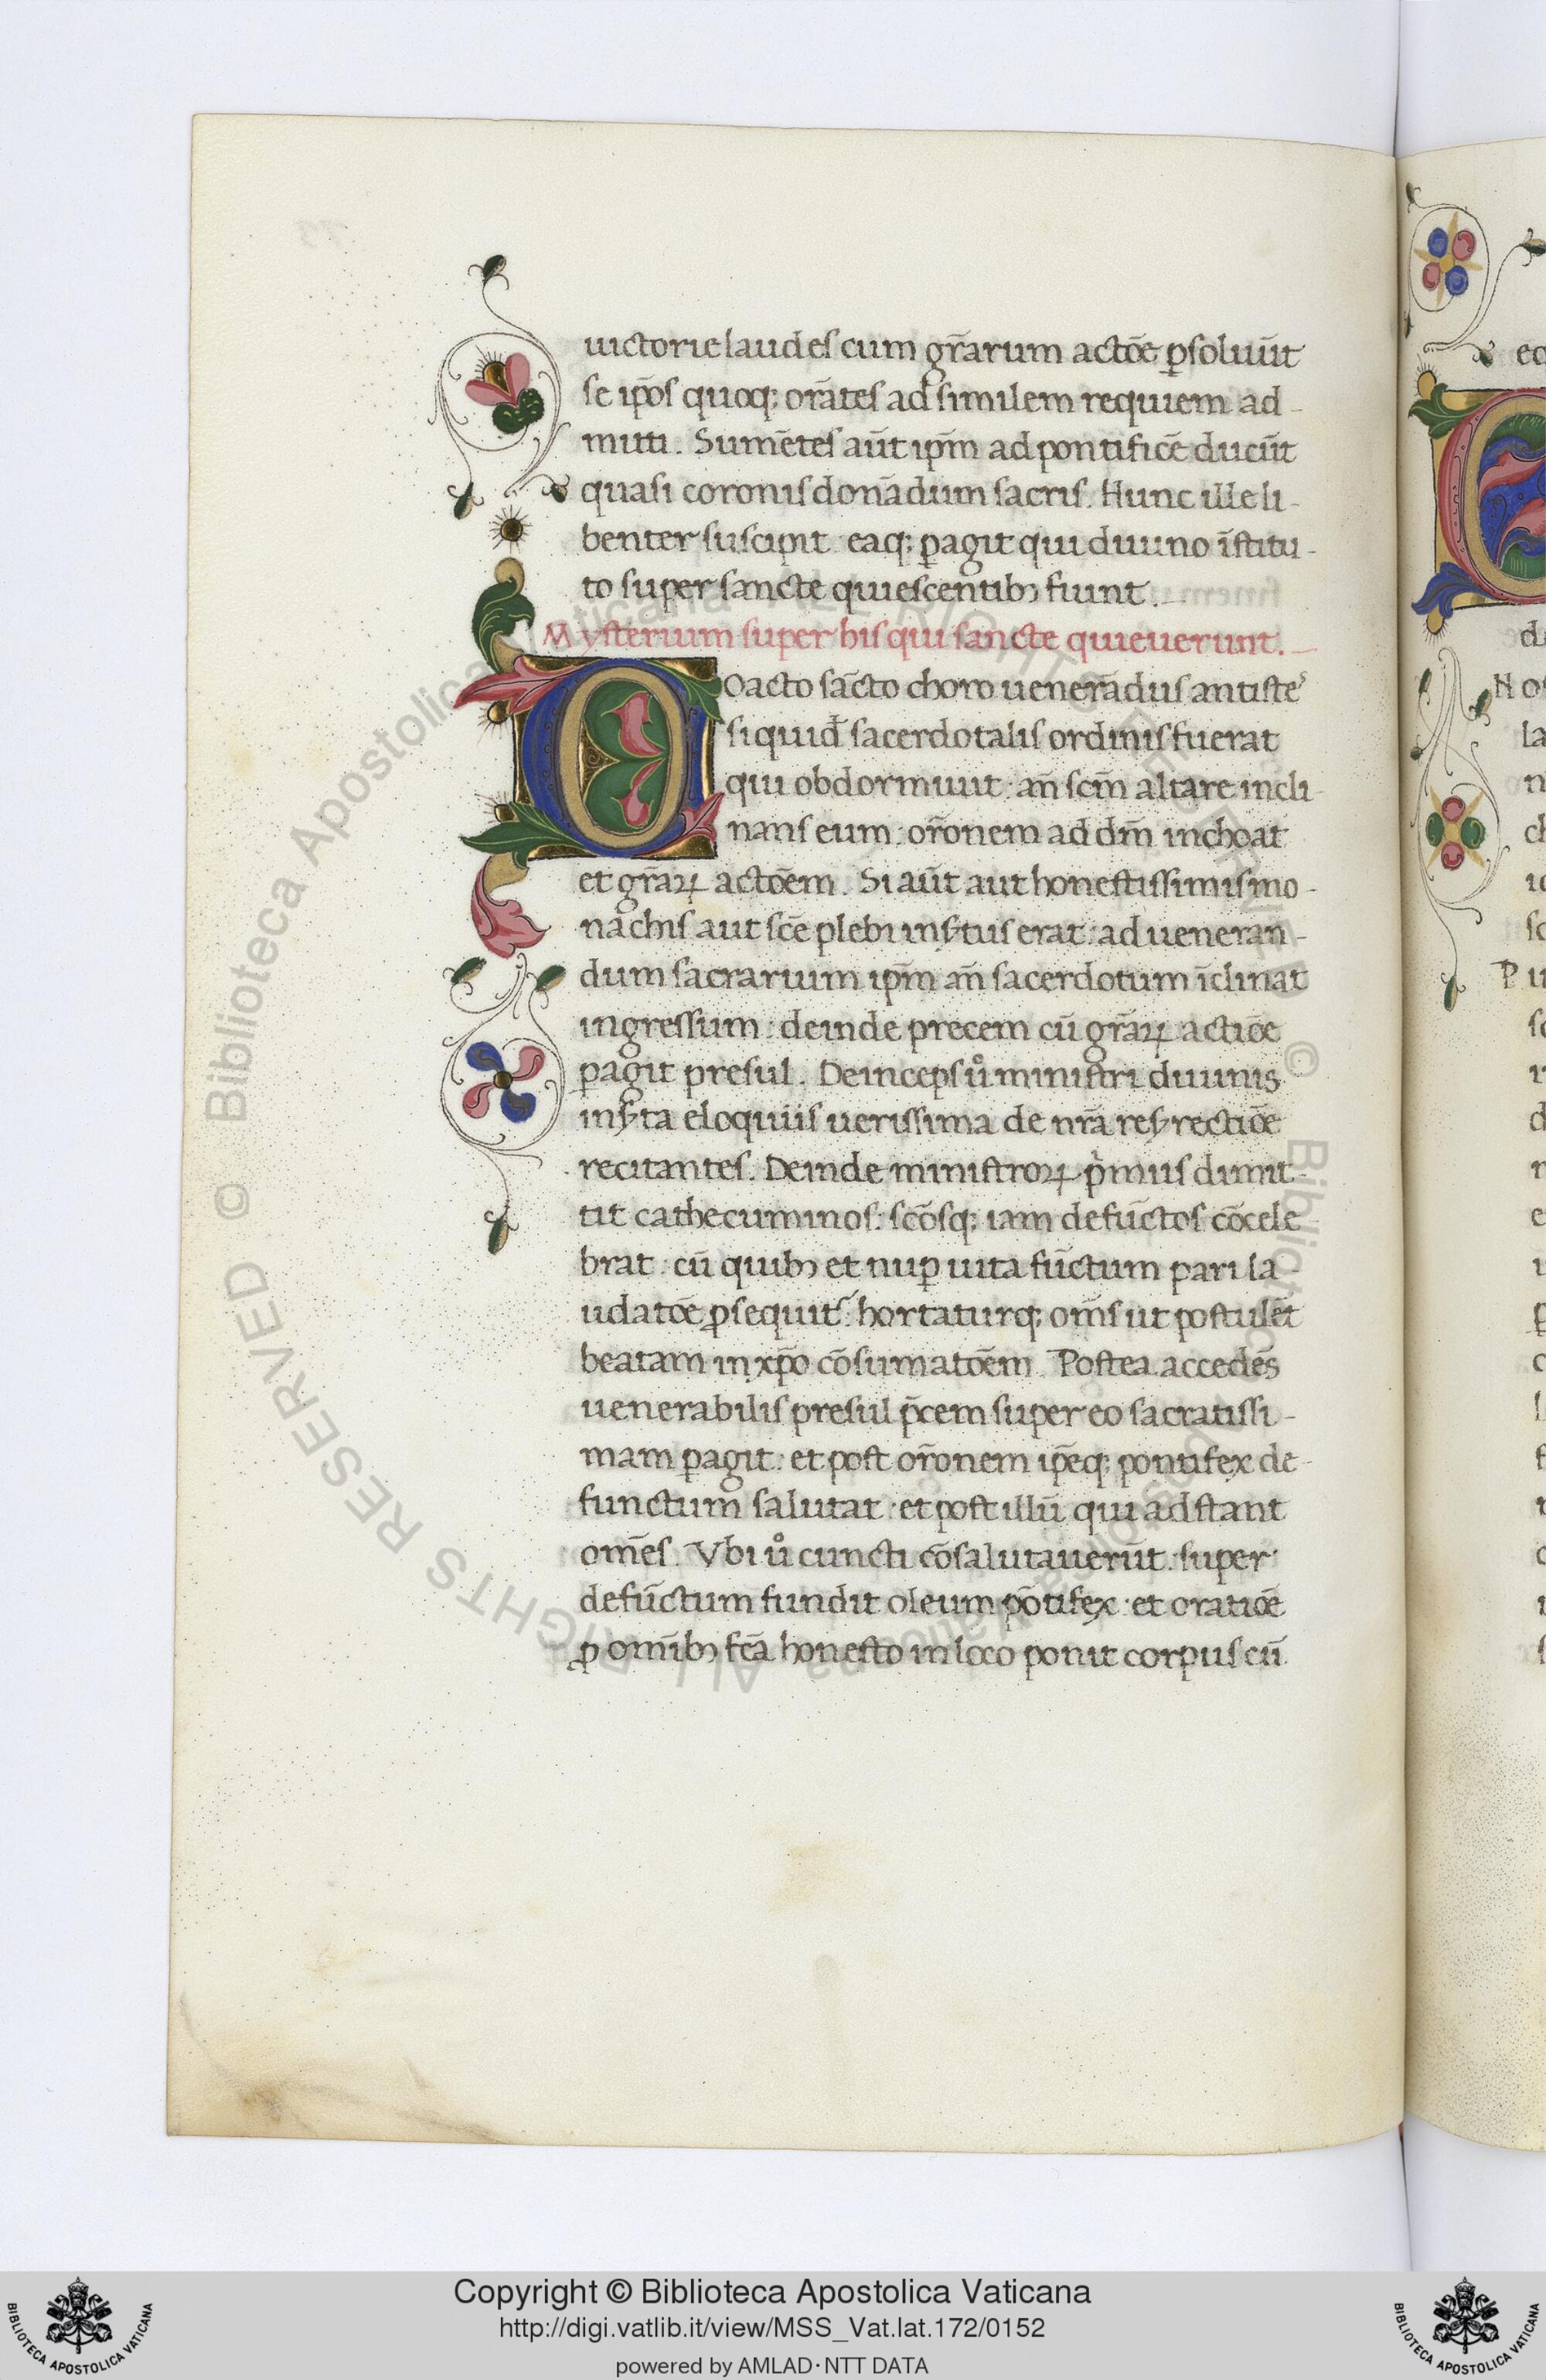 uictorie laudes cum gr̃arum actōe ꝑsoluūt
se ip̄os quoq; orātes ad similem requiem ad-
mitti. Sumētes aūt ip̄m ad pontificē ducūt
quasi coronis donādum sacris. Hunc ille li-
benter suscipit: eaq; ꝑagit qui diuino īstitu-
to super sancte quiescentibꝫ fiunt.
Mysterium super his qui sancte quieuerunt.
Coacto sācto choro uenerādus antiste˜
siquid̄ sacerdotalis ordinis fuerat
qui obdormiuit: an̄ scm̄ altare incli-
nans eum: or̄onem ad dm̄ inchoat
et gr̄aꝝ actōem. Si aūt aut honestissimis mo-
nachis aut scē plebi insꝰtus erat: ad ueneran-
dum sacrarium ip̄m an̄ sacerdotum īclinat
ingressum: deinde precem cū gr̄aꝝ actiōe
ꝑagit presul. Deinceps uͦ ministri diuinis
insꝰta eloquiis uerissima de nr̄a resꝰrectiōe
recitantes. Deinde ministroꝝ pͥmus dimit-
tit cathecuminos: scōsq; iam defūctos cōcele
brat: cū quibꝫ et nuꝑ uita fūctum pari la
udatōe ꝓsequit᷑: hortaturq; om̄s ut postulēt
beatam in xp̄o cōsumatōem. Postea accedēs
uenerabilis presul p̄cem super eo sacratissi-
mam ꝑagit: et post or̄onem ip̄eq; pontifex de-
functum salutat: et post illū qui adstant
om̄es. Vbi uͦ cuncti cōsalutauerūt: super
defūctum fundit oleum pōtifex: et oratiōe
ꝓ omībꝫ fcā honesto in loco ponit corpus cū
© Biblioteca Apostolica Vaticana ALL RIGHTS RESERVED
Copyright © Biblioteca Apostolica Vaticana
http://digi.vatlib.it/view/MSS_Vat.lat.172/0152
powered by AMLAD·NTT DATA
BIBLIOTECA APOSTOLICA VATICANA
BIBLIOTECA APOSTOLICA VATICANA